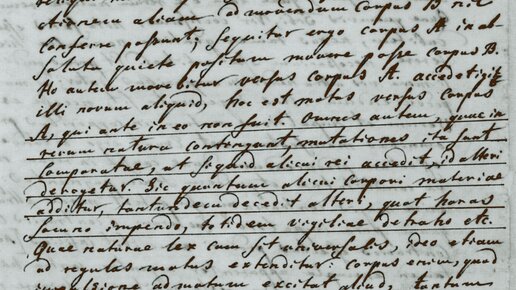 ctionem aliam ad movendum corpus B nil
conferre possunt; sequitur ergo corpus A in ab
soluta quiete positum movere posse corpus B.
Ho autem movebitur versus corpus A. accedet igit
illi novum aliquid, hoc est motus versus corpus
A, qui ante in eo non fuit. Omnes autem, quae in
rerum natura contingunt, mutationes ita sunt
comparatae, ut si quid alicui rei accedit, id alteri
derogetur. Sic quantum alicui corpori materiae
additur, tantundem decedit alteri, quot horas
somno impendo, totidem vigiliae detraho etc.
Quae naturae lex cum sit universalis, ideo etiam
ad regulas motus extenditur: corpus enim, quod
impulsione ad motum excitat aliud, tantum